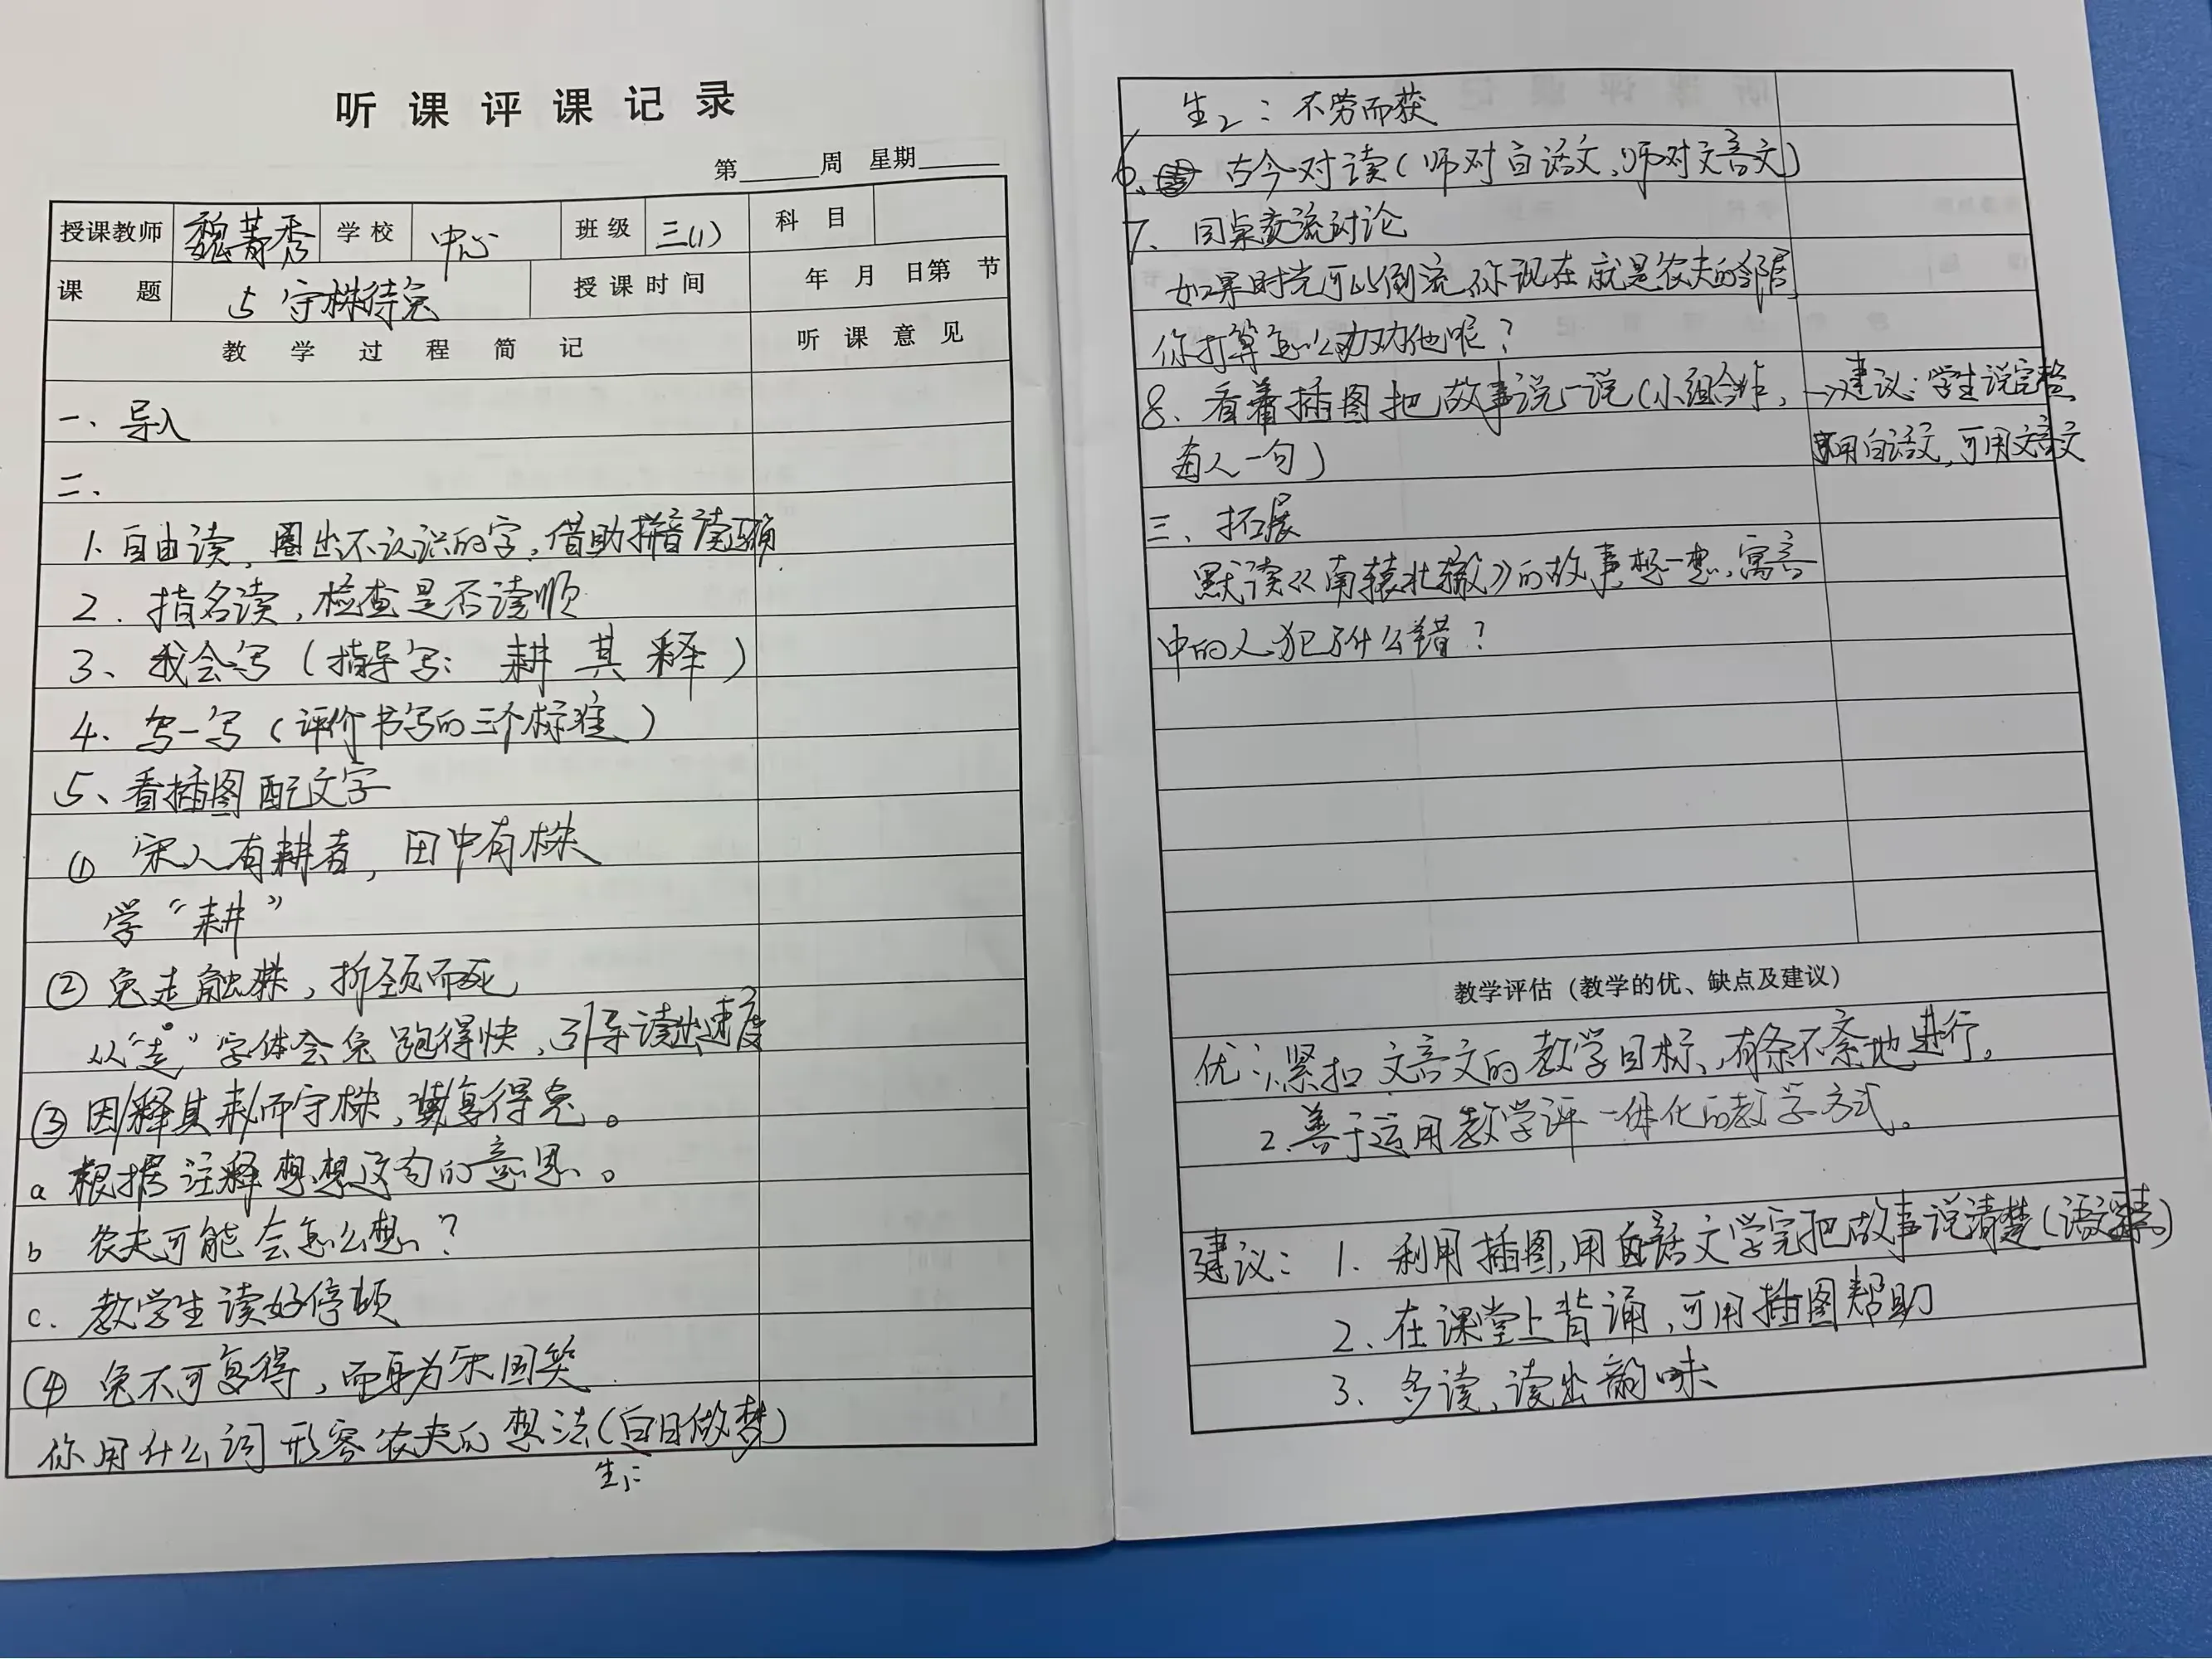 听课评课记录
第____周 星期____
授课教师 魏菁秀 学校 中心 班级 三(1) 科目
课题 5 守株待兔 授课时间 年 月 日第 节
教学过程简记 听课意见
一、导入
二、
1、自由读,圈出不认识的字,借助拼音读正确
2. 指名读,检查是否读顺
3、我会写(指导写: 耕 其 释)
4、写一写(评价书写的三个标准)
5、看插图配文字
① 宋人有耕者,田中有株
学“耕”
② 兔走触株,折颈而死
从“走”字体会兔跑得快,引导读出速度
③ 因释其耒而守株,冀复得兔。
a 根据注释想想这句的意思。
b 农夫可能会怎么想?
c. 教学生读好停顿
④ 兔不可复得,而身为宋国笑
你用什么词形容农夫的想法(白日做梦)
生1:
生2:不劳而获
6、古今对读(师对白话文,师对文言文)
7、同桌交流讨论
如果时光可以倒流,你现在就是农夫的邻居,
你打算怎么劝劝他呢?
8、看着插图把故事说一说(小组合作, →建议:学生说完整
每人一句) 用白话文,可用文言文
三、拓展
默读《南辕北辙》的故事,想一想,寓言
中的人犯了什么错?
教学评估(教学的优、缺点及建议)
优:1.紧扣文言文的教学目标,有条不紊地进行。
2.善于运用教学评一体化的教学方式。
建议: 1. 利用插图,用白话文学完把故事说清楚(语文)
2、在课堂上背诵,可用插图帮助
3、多读,读出韵味